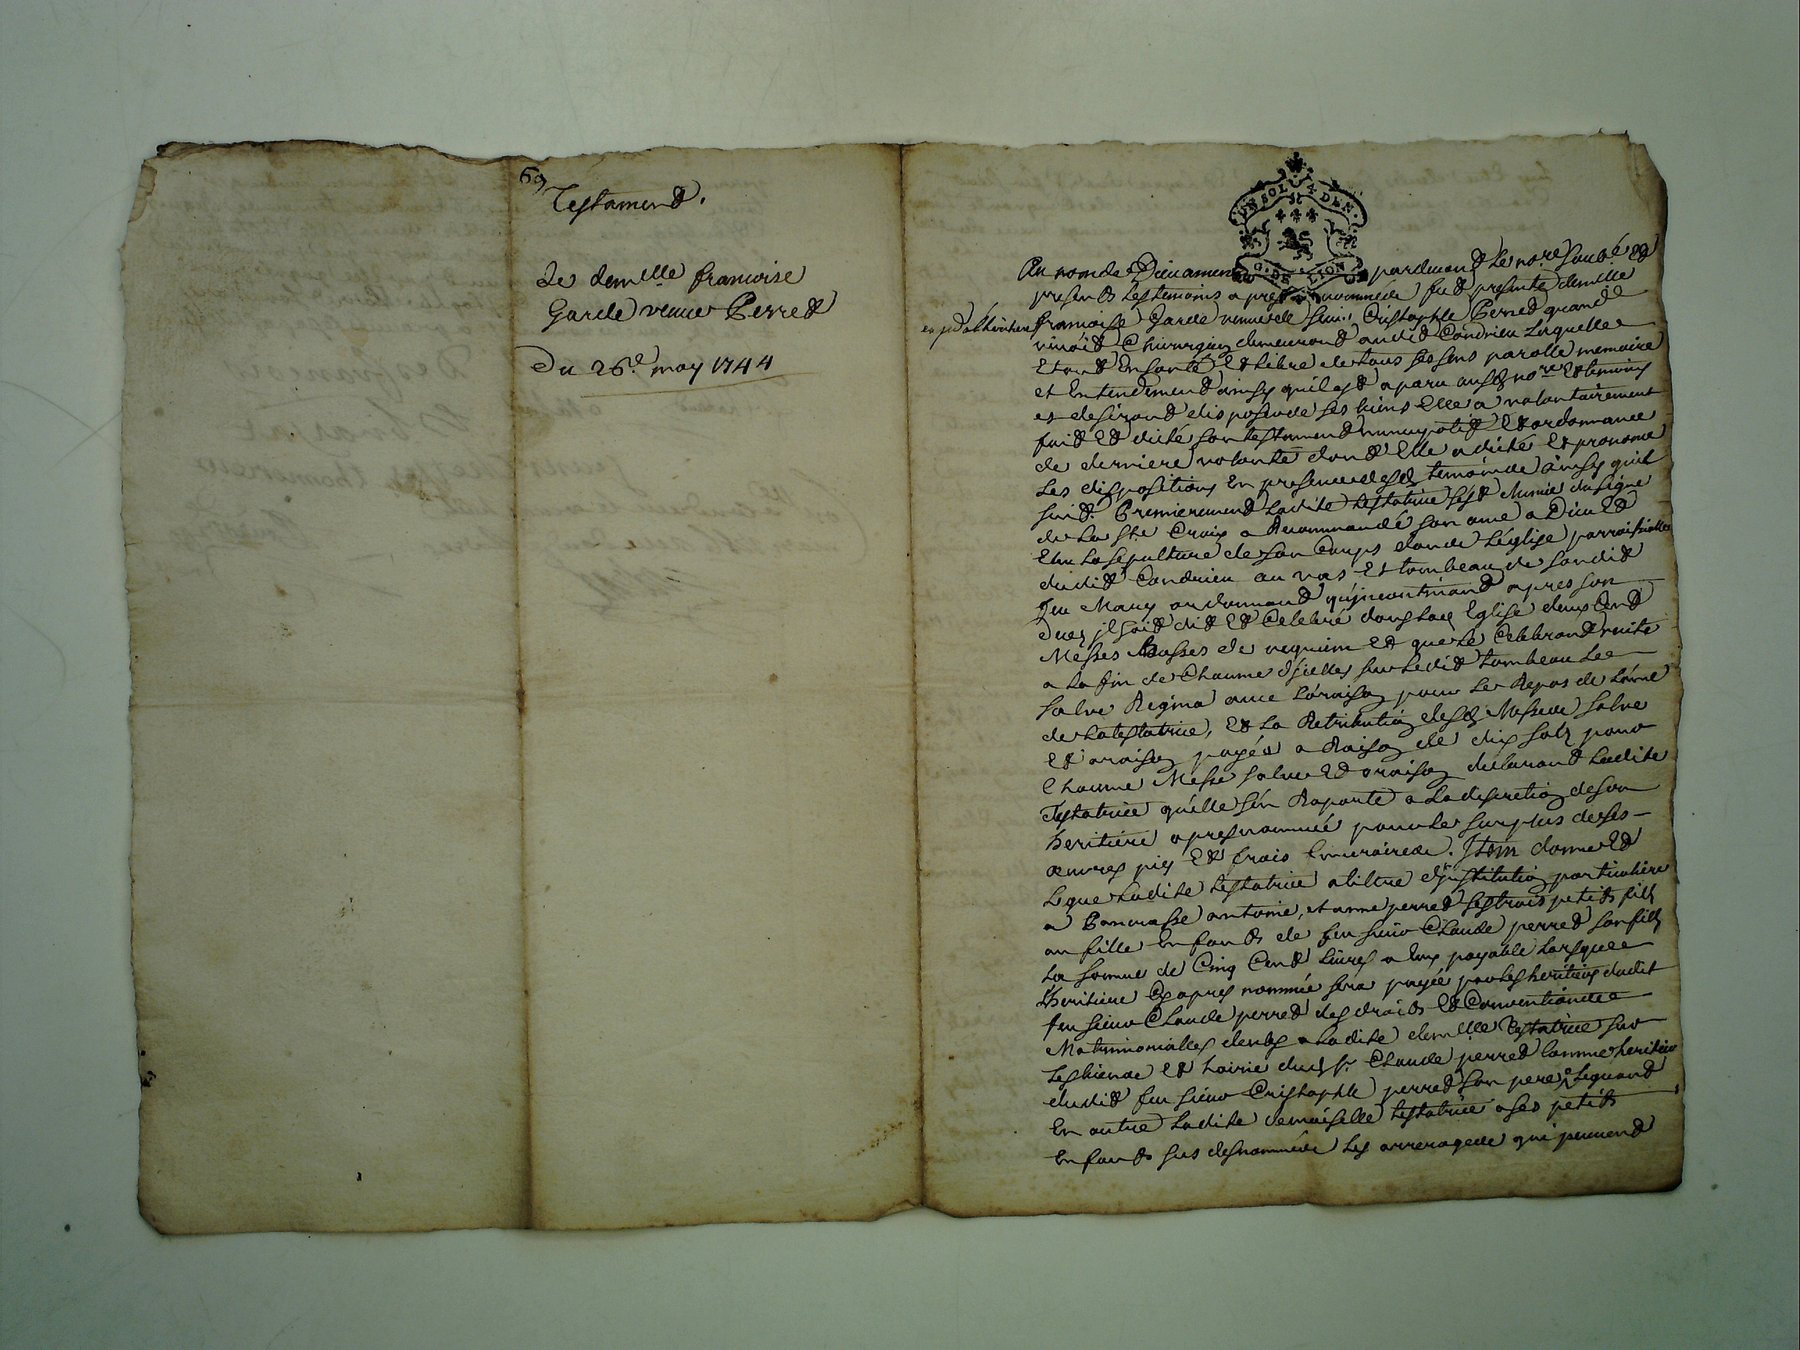 69
Testament.
de demlle francoise
Garde veuve Perret
Du 26e may 1744
UN SOL 4 DEN.
G. DE LION
Au nom de Dieu amen pardevant le nore soubé et
presents les temoins apres nommés fut presente demlle
francoise Garde veuve de sieur Cristophle Perret quand
vivoit Chirurgien demeurant audit Condrieu laquelle
Etant En santé et libre de tous ses sens parolle memoire
et Entendement ainsy quil est aparu ausd nore et temoins
et desirant disposer de ses biens Elle a volontairement
fait et dicté son testament nuncupatif et ordonnance
de derniere volonté dont Elle a dicté et prononcé
les dispositions En presence desd temoins ainsy quil
suit. Premierement ladite testatrice sest munie du signe
de la Ste Croix a Recommandé son ame a Dieu et
Elu la sepulture de son Corps dans l'église parroissialle
dudit Condrieu au vas et tombeau de sondit
feu Mary ordonnant qu'incontinant apres son
deces il soit dit et Celebré dans lad Eglise deux Cent
Messes Basses de requiem et que le Celebrant recite
a la fin de Chacune d'jcelles sur ledit tombeau le
salve Regina avec l'oraison pour le Repos de l'ame
de la testatrice, et la Retribution desd Messes salve
et oraison payée a Raison de dix sols pour
Chacune Messe salve et oraison declarant ladite
Testatrice qu'elle s'en Raporte a la discretion de son
heritiere apres nommée pour le surplus de ses
œuvres pies et frais funeraires. Item donne et
legue ladite testatrice a titre d'jnstitution particuliere
a Pancrasse antoine, et anne perret ses trois petits fils
ou fille Enfants de feu sieur Claude perret son fils
la somme de Cinq Cent livres a Eux payable lorsque
l'heritiere Cy apres nommée sera payée par les heritiers dudit
feu sieur Claude perret des droits et Conventions
Matrimonialles deubs a ladite demlle testatrice sur
les biens et hoirie dud sr. Claude perret Comme heritier
dudit feu sieur Cristophle perret son pere, leguant
En outre ladite demoiselle testatrice a ses petits
Enfants sus desnommés les arrerages qui peuvent